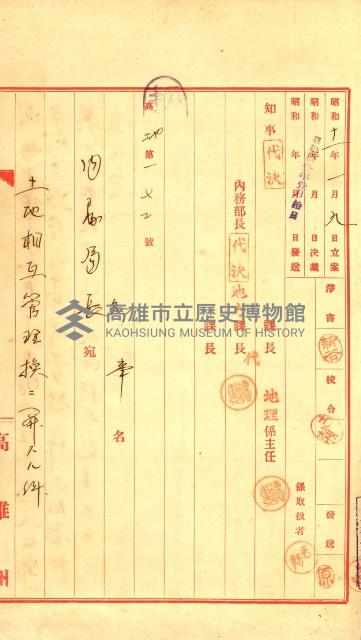 昭和十一年一月九日立案
昭和 年 月 日決議
昭和 年 月 日發送
淨書
校合
發送
係取扱者
知事
代決
內務部長
代決
地
課長
課長
代
地理係主任
高地第一七二號
內務局長宛
名
土地相互管理換ニ關スル件
高雄州
高雄市立歷史博物館
KAOHSIUNG MUSEUM OF HISTORY